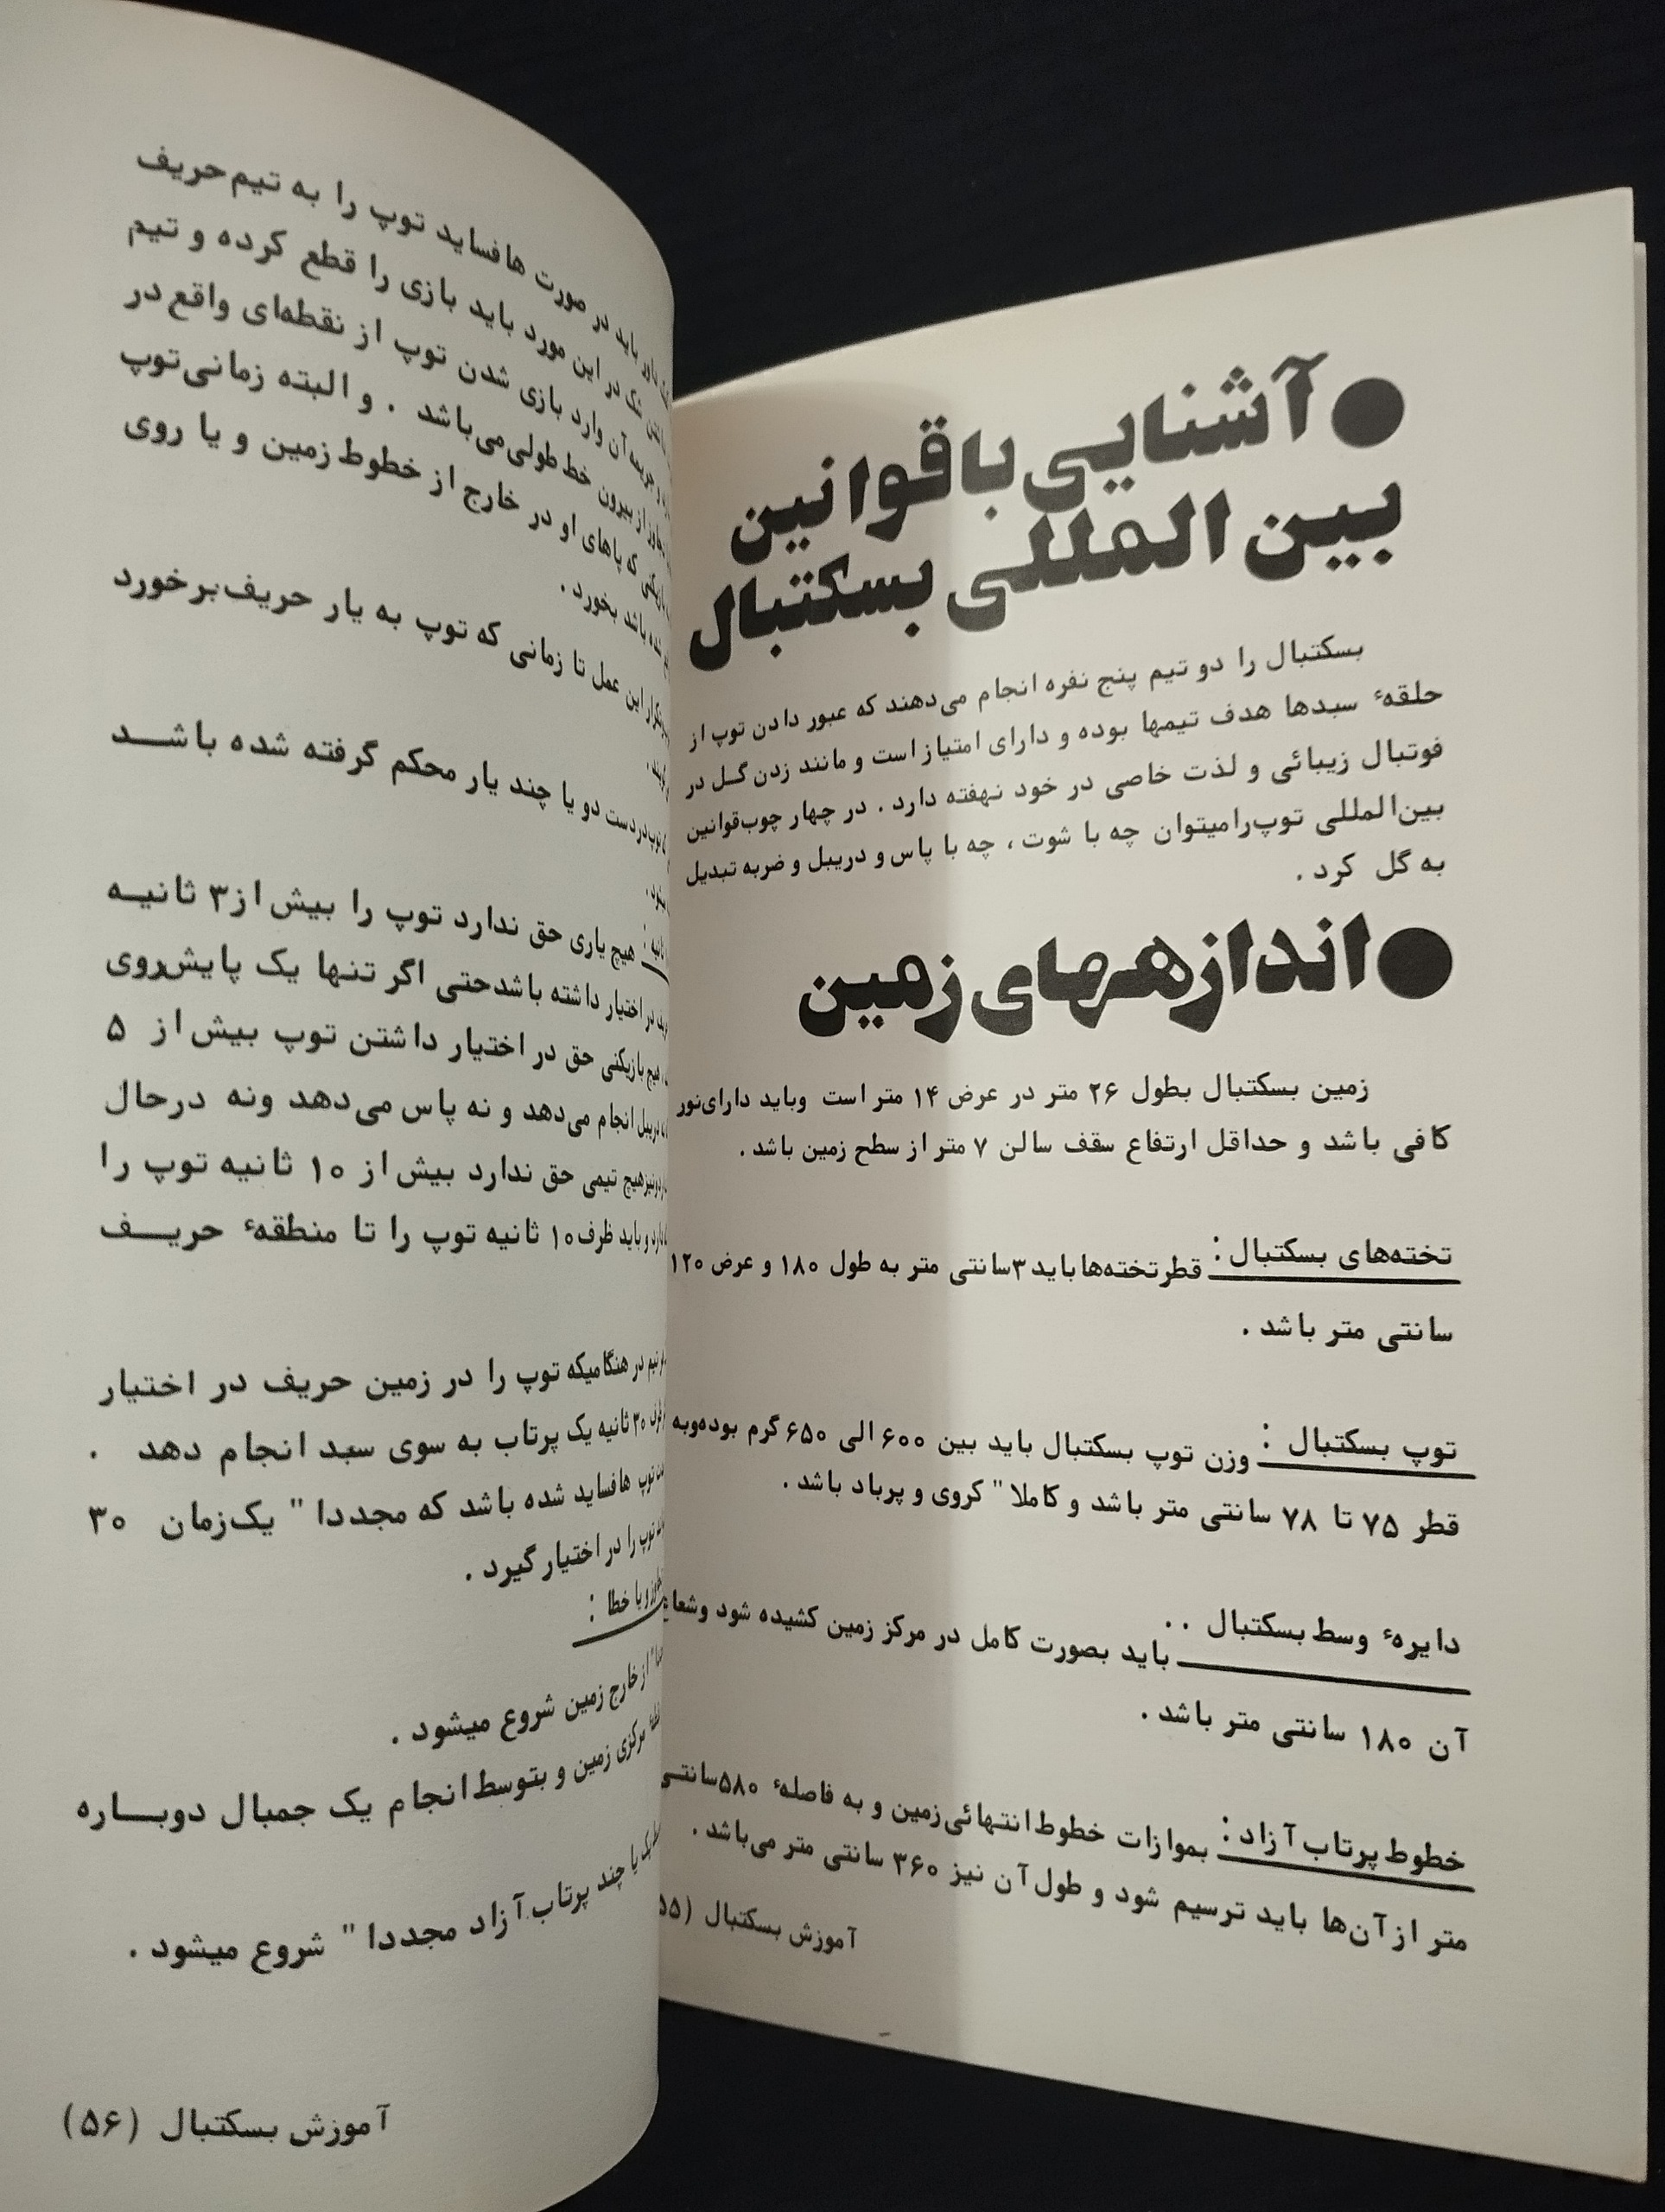 ● آشنایی با قوانین
بین المللی بسکتبال
بسکتبال را دو تیم پنج نفره انجام می‌دهند که عبور دادن توپ از
حلقهٔ سبدها هدف تیمها بوده و دارای امتیاز است و مانند زدن گل در
فوتبال زیبائی و لذت خاصی در خود نهفته دارد . در چهار چوب قوانین
بین‌المللی توپ‌رامیتوان چه با شوت ، چه با پاس و دریبل و ضربه تبدیل
به گل کرد .
● اندازه‌های زمین
زمین بسکتبال بطول ۲۶ متر در عرض ۱۴ متر است وباید دارای‌نور
کافی باشد و حداقل ارتفاع سقف سالن ۷ متر از سطح زمین باشد .
تخته‌های بسکتبال : قطرتخته‌ها باید ۳سانتی متر به طول ۱۸۰ و عرض ۱۲۰
سانتی متر باشد .
توپ بسکتبال : وزن توپ بسکتبال باید بین ۶۰۰ الی ۶۵۰ گرم بوده‌وبه
قطر ۷۵ تا ۷۸ سانتی متر باشد و کاملا " کروی و پرباد باشد .
دایرهٔ وسط بسکتبال . . باید بصورت کامل در مرکز زمین کشیده شود وشعاع
آن ۱۸۰ سانتی متر باشد .
خطوط پرتاب آزاد : بموازات خطوط انتهائی‌زمین و به فاصلهٔ ۵۸۰سانتی
متر ازآن‌ها باید ترسیم شود و طول آن نیز ۳۶۰ سانتی متر می‌باشد .
آموزش بسکتبال (۵۵
داور باید در صورت هافساید توپ را به تیم‌حریف
شک در این مورد باید بازی را قطع کرده و تیم
جریمه آن وارد بازی شدن توپ از نقطه‌ای واقع در
از بیرون خط طولی‌می‌باشد . و البته زمانی‌توپ
بازیکنی که پاهای او در خارج از خطوط زمین و یا روی
شده باشد بخورد .
تکرار این عمل تا زمانی که توپ به یار حریف‌برخورد
توپ‌دردست دو یا چند یار محکم گرفته شده باشد
هیچ یاری حق ندارد توپ را بیش از۳ ثانیه
در اختیار داشته باشدحتی اگر تنها یک پایش‌روی
هیچ بازیکنی حق در اختیار داشتن توپ بیش از ۵
دریبل انجام می‌دهد و نه پاس می‌دهد ونه درحال
هیچ تیمی حق ندارد بیش از ۱۰ ثانیه توپ را
و باید ظرف۱۰ ثانیه توپ را تا منطقهٔ حریف
تیم در هنگامیکه توپ را در زمین حریف در اختیار
۳۰ ثانیه یک پرتاب به سوی سبد انجام دهد .
توپ هافساید شده باشد که مجددا " یک‌زمان ۳۰
توپ را در اختیار گیرد .
و یا خطا :
از خارج زمین شروع میشود .
مرکزی زمین و بتوسط انجام یک جمبال دوباره
یک یا چند پرتاب آزاد مجددا " شروع میشود .
آموزش بسکتبال (۵۶)